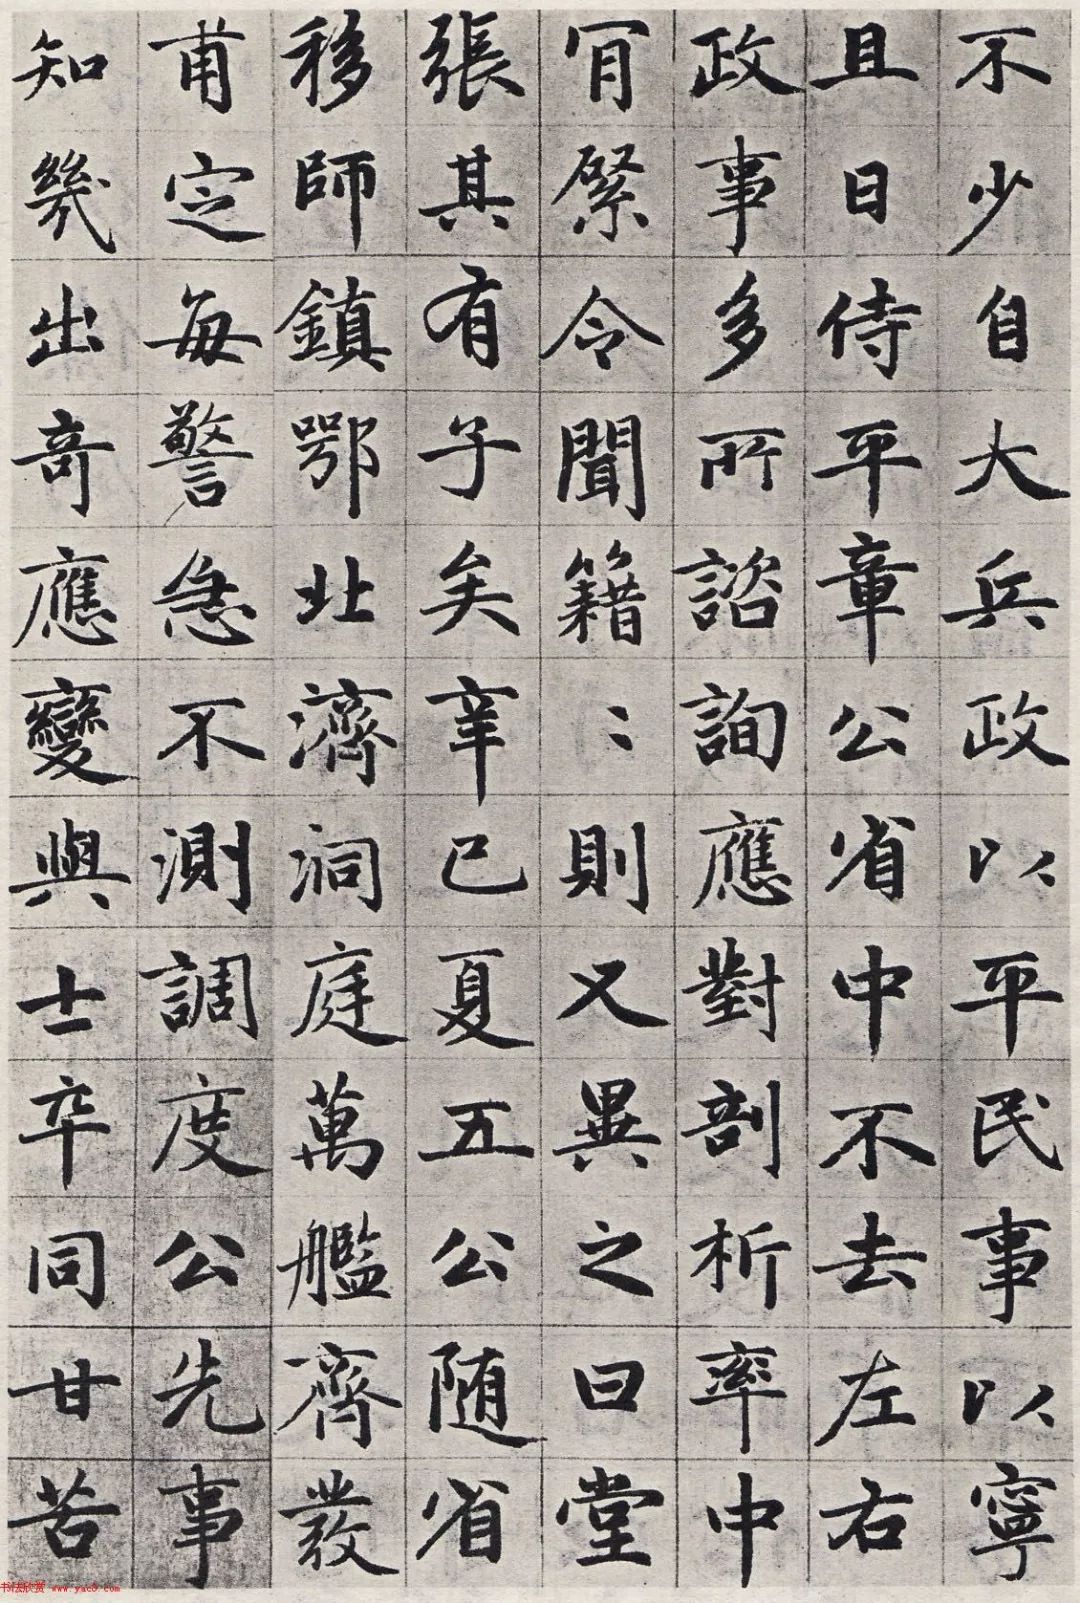 不少自大兵政以平民事以寧
且日侍平章公省中不去左右
政事多所諮詢應對剖析率中
肎綮令聞籍〻則又異之曰堂
張其有子矣辛巳夏五公随省
移師鎮鄂北濟洞庭萬艦齊發
甫定每警急不測調度公先事
知幾出奇應變與士卒同甘苦
书法欣赏 www.yac8.com